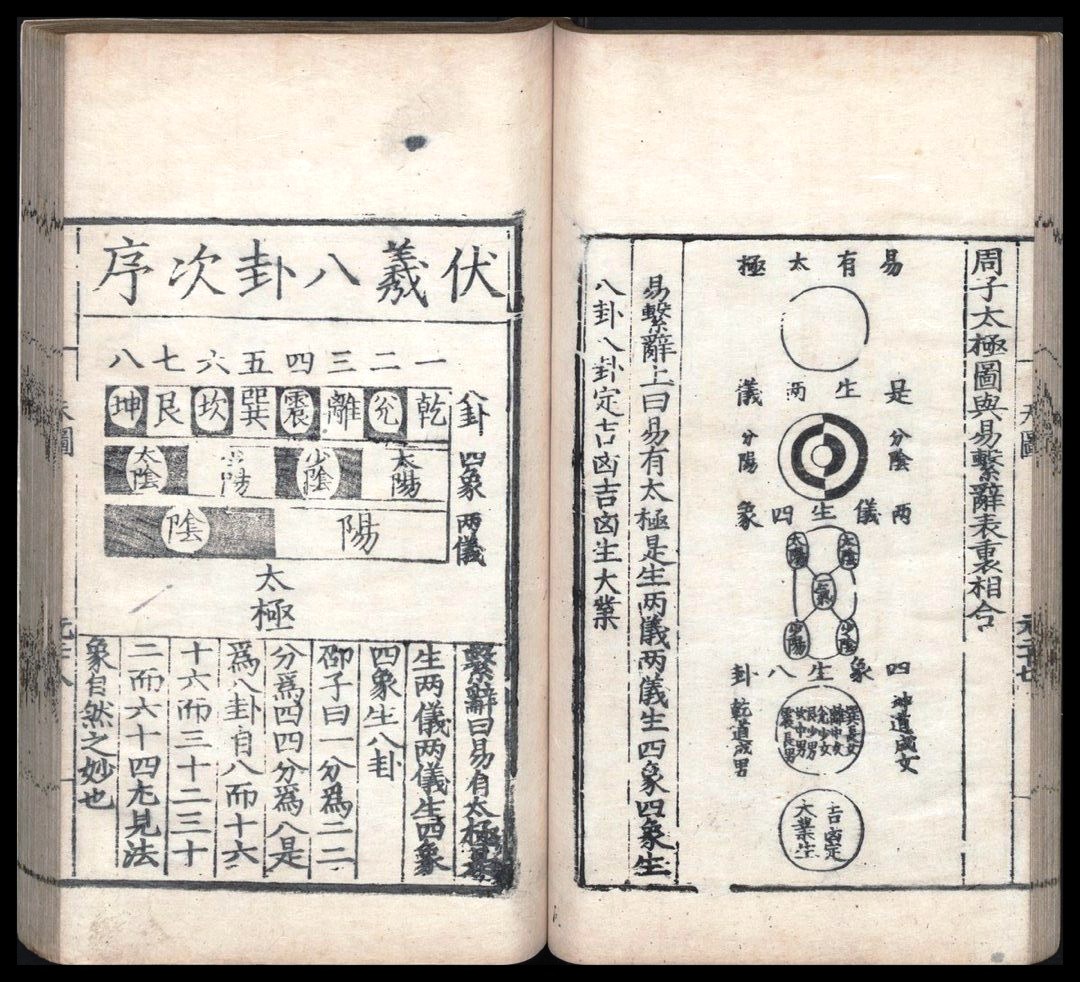 周子太極圖與易繫辭表裏相合
易有太極
是生兩儀
分陰
分陽
兩儀生四象
太陰
太陽
氣
少陰
少陽
四象生八卦
坤道成女
乾道成男
巽長女
離中女
兌少女
艮少男
坎中男
震長男
吉凶定
大業生
易繫辭上曰易有太極是生兩儀兩儀生四象四象生
八卦八卦定吉凶吉凶生大業
伏羲八卦次序
一二三四五六七八
八卦
乾兌離震巽坎艮坤
四象
太陽
少陰
少陽
太陰
兩儀
陽
陰
太極
繫辭曰易有太極是
生兩儀兩儀生四象
四象生八卦
邵子曰一分爲二二
分爲四四分爲八是
爲八卦自八而十六
十六而三十二三十
二而六十四尤見法
象自然之妙也